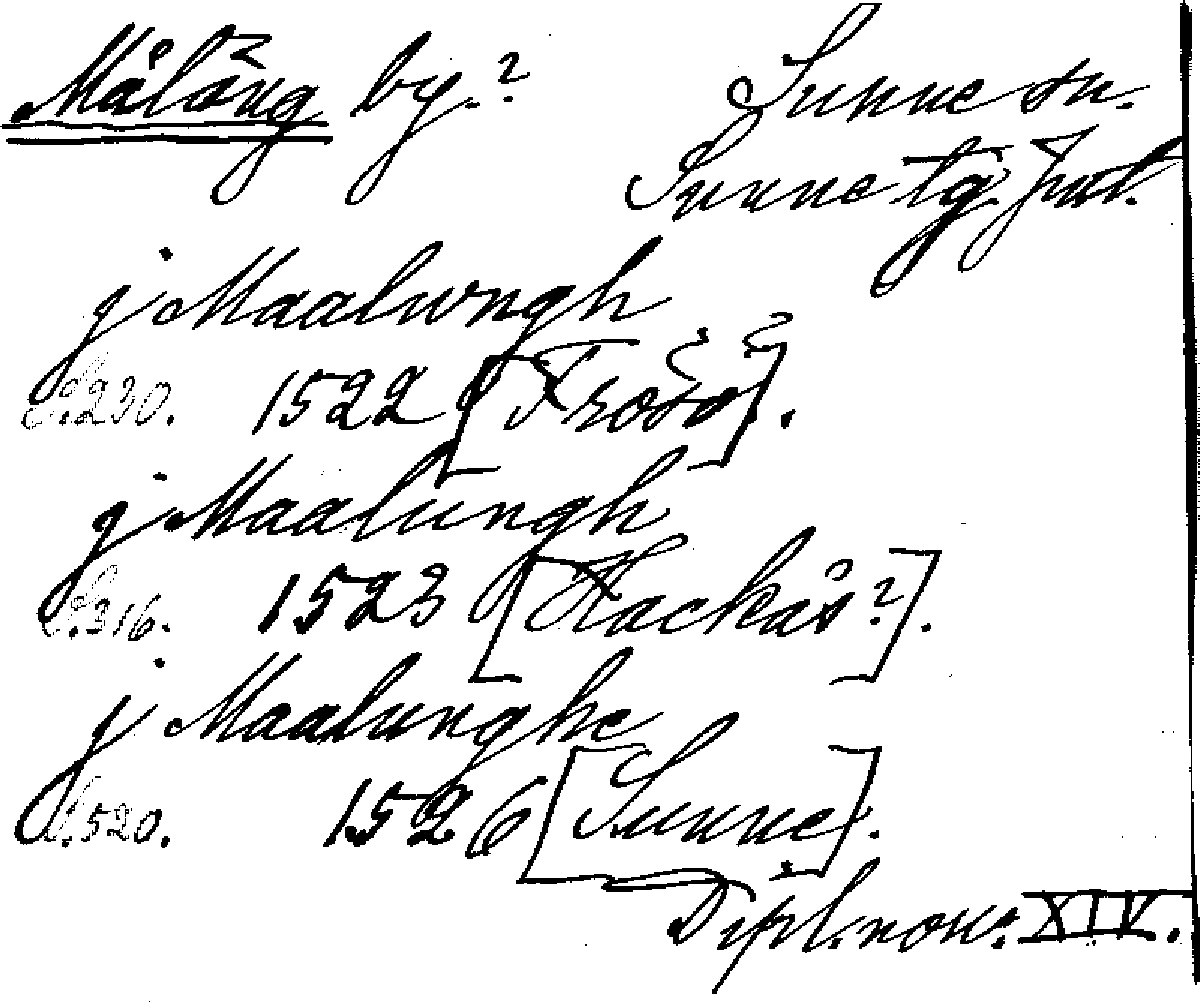 Målång by.? Sunne sn.
Sunne tg. Jmtl.
j Maalwngh
S. 230. 1522 [Frösö].
j Maalungh
S. 316. 1523 [Hackås?].
j Maalunghe
S. 520. 1526 [Sunne].
Dipl. norv. XIV.